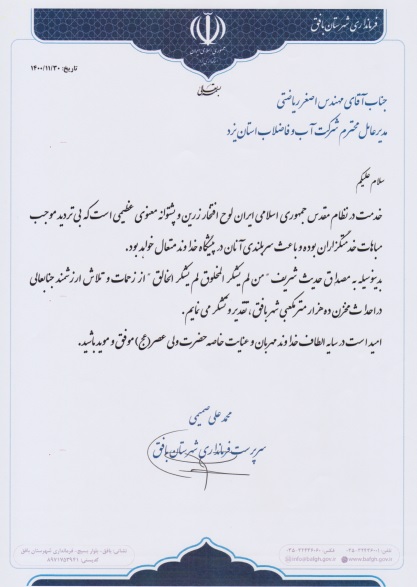 فرمانداری شهرستان بافق
جمهوری اسلامی ایران
تاریخ: ۱۴۰۰/۱۱/۳۰
بسمه تعالی
جناب آقای مهندس اصغر ریاضتی
مدیرعامل محترم شرکت آب و فاضلاب استان یزد
سلام علیکم
خدمت در نظام مقدس جمهوری اسلامی ایران لوح افتخار زرین و پشتوانه معنوی عظیمی است که بی تردید موجب
مباهات خدمتگزاران بوده و باعث سربلندی آنان در پیشگاه خداوند متعال خواهد بود.
بدینوسیله به مصداق حدیث شریف "من لم یشکر المخلوق لم یشکر الخالق" از زحمات و تلاش ارزشمند جنابعالی
در احداث مخزن ده هزار متر مکعبی شهر بافق، تقدیر و تشکر می نمایم.
امید است در سایه الطاف خداوند مهربان و عنایت خاصه حضرت ولی عصر(عج) موفق و موید باشید.
محمد علی صمیمی
سرپرست فرمانداری شهرستان بافق
نشانی: بافق، بلوار بسیج، فرمانداری شهرستان بافق
www.bafgh.gov.ir